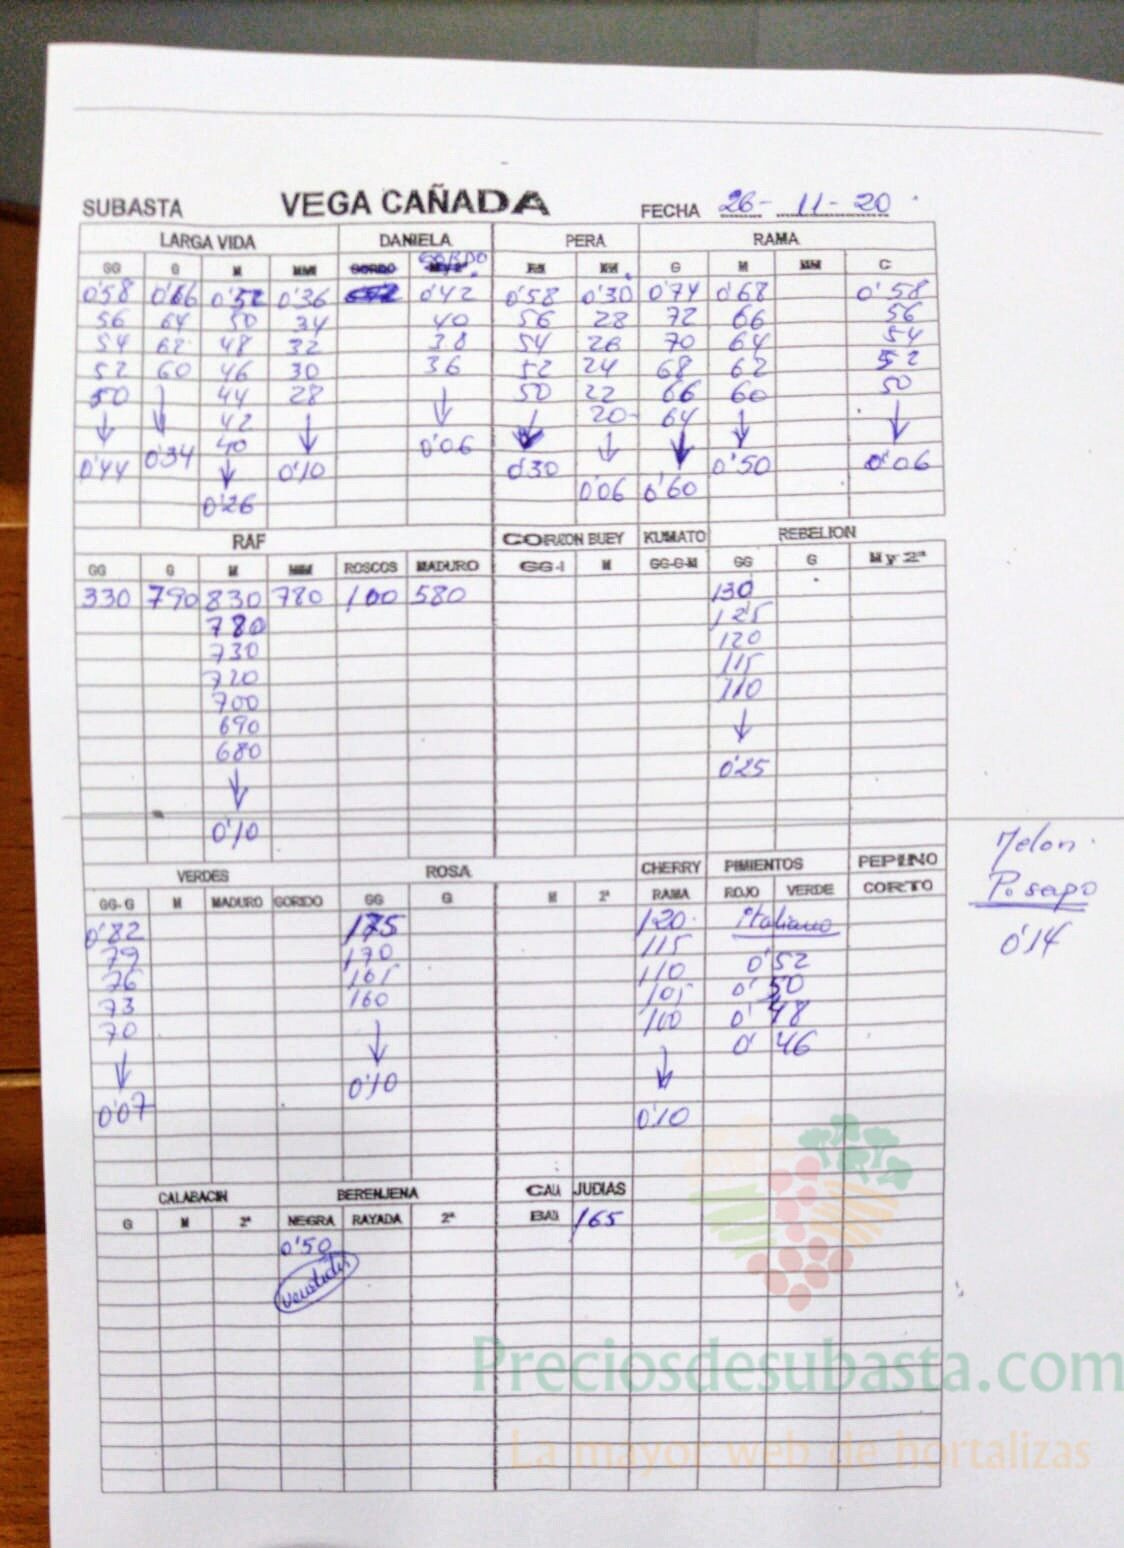 SUBASTA VEGA CAÑADA FECHA 26-11-20
LARGA VIDA DANIELA PERA RAMA
GORDO
GG G M MM GORDO M y 2ª G M MM C
0'58 0'66 0'52 0'36 0'42 0'58 0'30 0'74 0'68 0'58
56 64 50 34 40 56 28 72 66 56
54 62 48 32 38 54 26 70 64 54
52 60 46 30 36 52 24 68 62 52
50 ↓ 44 28 ↓ 50 22 66 60 50
↓ 42 ↓ ↓ 20 64 ↓ ↓
0'44 0'34 40 0'10 0'06 0'30 ↓ ↓ 0'50 0'06
↓
0'26 0'06 0'60
RAF CORZON BUEY KUMATO REBELION
GG G M MM ROSCOS MADURO GG-I M GG-G-M GG G M y 2ª
330 790 830 780 100 580 130
780 125
730 120
720 115
700 110
690 ↓
680 0'25
↓
0'10
VERDES ROSA CHERRY PIMIENTOS PEPINO
GG-G M MADURO GORIDO GG G M 2ª RAMA ROJO VERDE CORTO
0'82 175 120 italiano
79 170 115 0'52
76 165 110 0'50
73 160 105 0'48
70 ↓ 100 0'46
↓ 0'10 ↓
0'07 0'10
Melon
P. sapo
0'14
CALABACIN BERENJENA CAU JUDIAS
G M 2ª NEGRA RAYADA 2ª 165
0'50
Preciosdesubasta.com
La mayor web de hortalizas